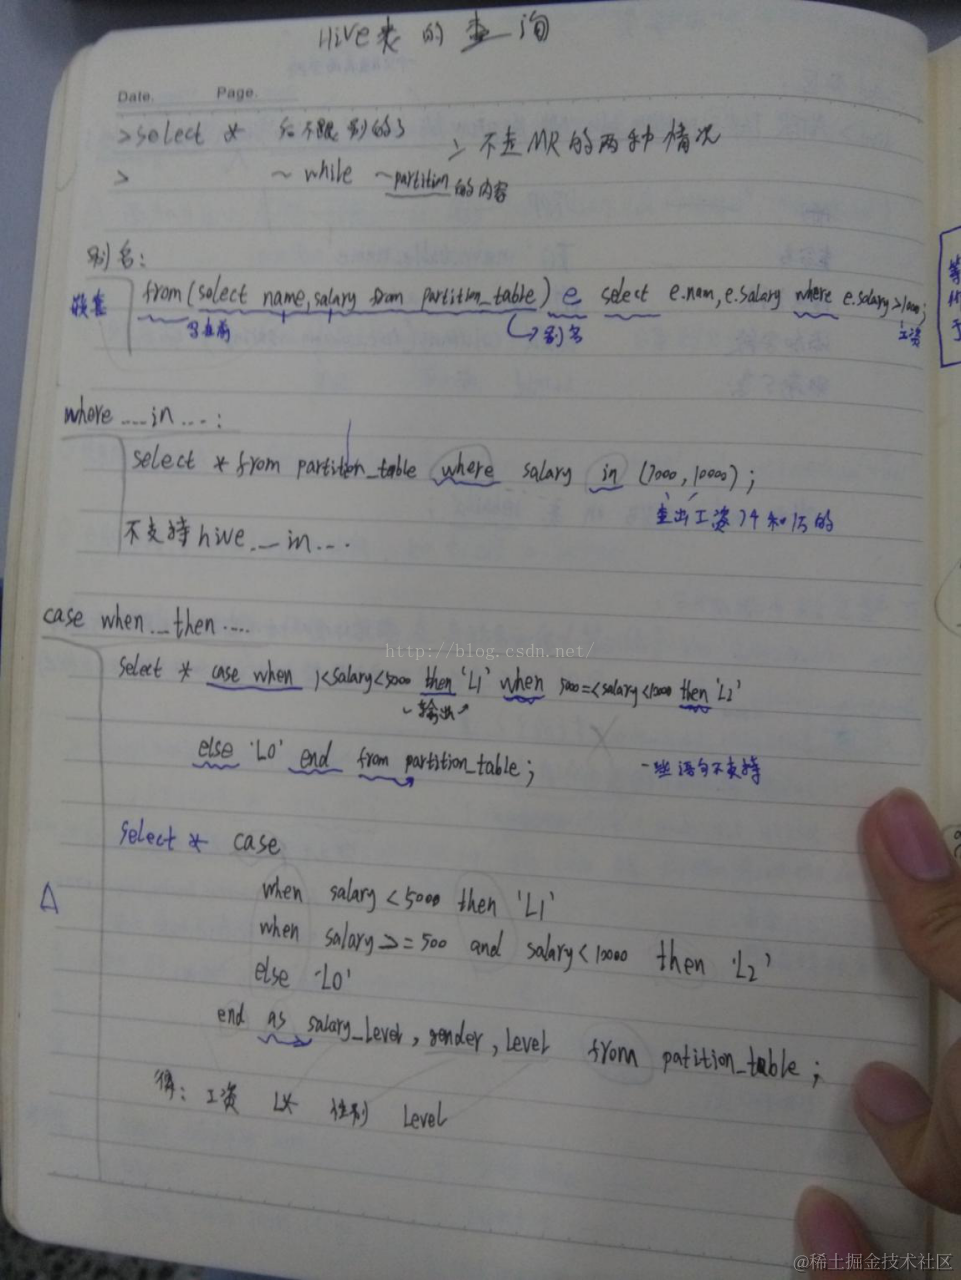 Hive表的查询
Date. Page.
>select * 后不跟别的了
> ~ while ~partition的内容
> 不走MR的两种情况
别名:
嵌套 from(select name,salary from partition_table) e select e.nam,e.salary where e.salary>1000;
写在前 别名 工资
where ...in ...:
select * from partition_table where salary in (7000,10000);
查出工资74和15的
不支持hive ... in ...
case when ... then ....
http://blog.csdn.net/
select * case when 1<salary<5000 then 'L1' when 5000=<salary<10000 then 'L2'
输出
else 'L0' end from partition_table;
一些语句不支持
select * case
when salary<5000 then 'L1'
when salary>=500 and salary<10000 then 'L2'
else 'L0'
end as salary_level,gender,level from patition_table;
得: 工资 L* 性别 Level
@稀土掘金技术社区